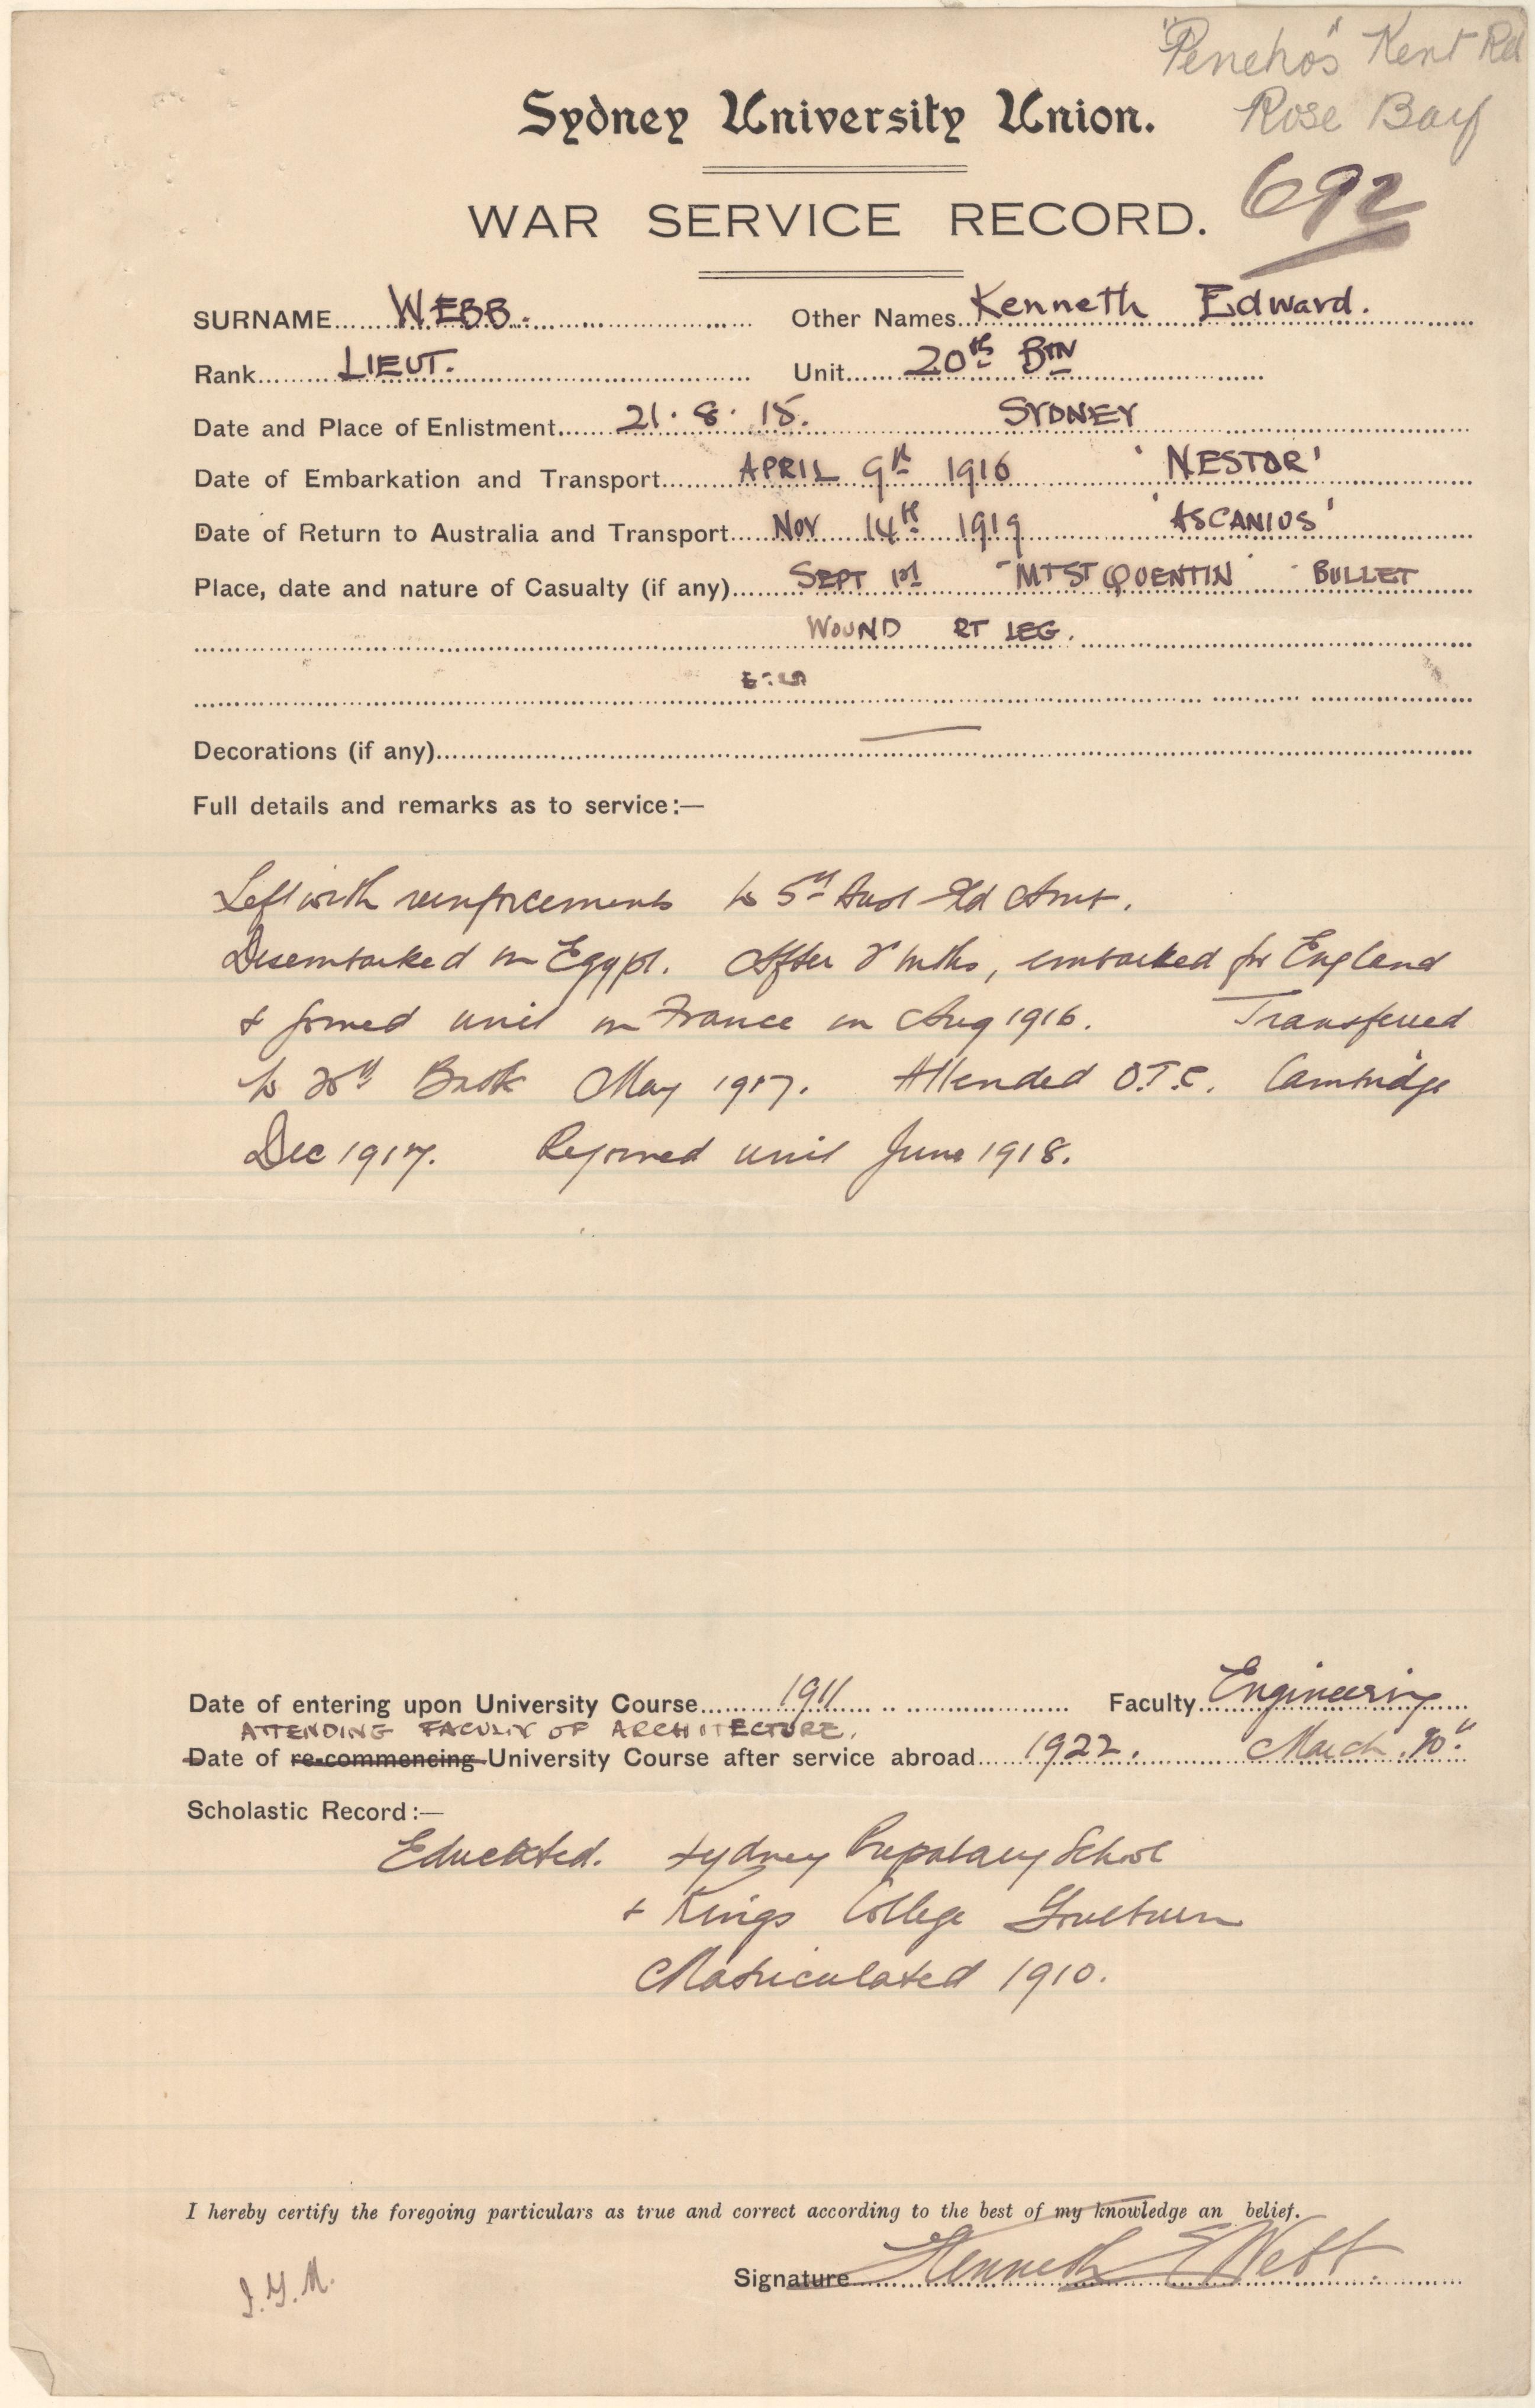 "Peneho's Kent Rd
Rose Bay
Sydney University Union.
WAR SERVICE RECORD. 692
SURNAME WEBB. Other Names Kenneth Edward.
Rank LIEUT. Unit 20th BTN
Date and Place of Enlistment 21.8.15. SYDNEY
Date of Embarkation and Transport APRIL 9th 1916 'NESTOR'
Date of Return to Australia and Transport Nov 14th 1919 'ASCANIUS'
Place, date and nature of Casualty (if any) SEPT 1st MT ST QUENTIN BULLET
WOUND RT LEG.
Decorations (if any) —
Full details and remarks as to service:—
Left with reinforcements to 5th Aust Fld Amb.
Disembarked in Egypt. After 2 mths, embarked for England
& joined unit in France in Aug 1916. Transferred
to 20th Battn May 1917. Attended O.T.C. Cambridge
Dec 1917. Rejoined unit June 1918.
Date of entering upon University Course 1911 Faculty Engineering
ATTENDING FACULTY OF ARCHITECTURE.
Date of re-commencing University Course after service abroad 1922. March
Scholastic Record:—
Educated. Sydney Preparatory School
& Kings College Goulburn
Matriculated 1910.
I hereby certify the foregoing particulars as true and correct according to the best of my knowledge an belief.
Signature Kenneth E Webb.
J.Y.M.